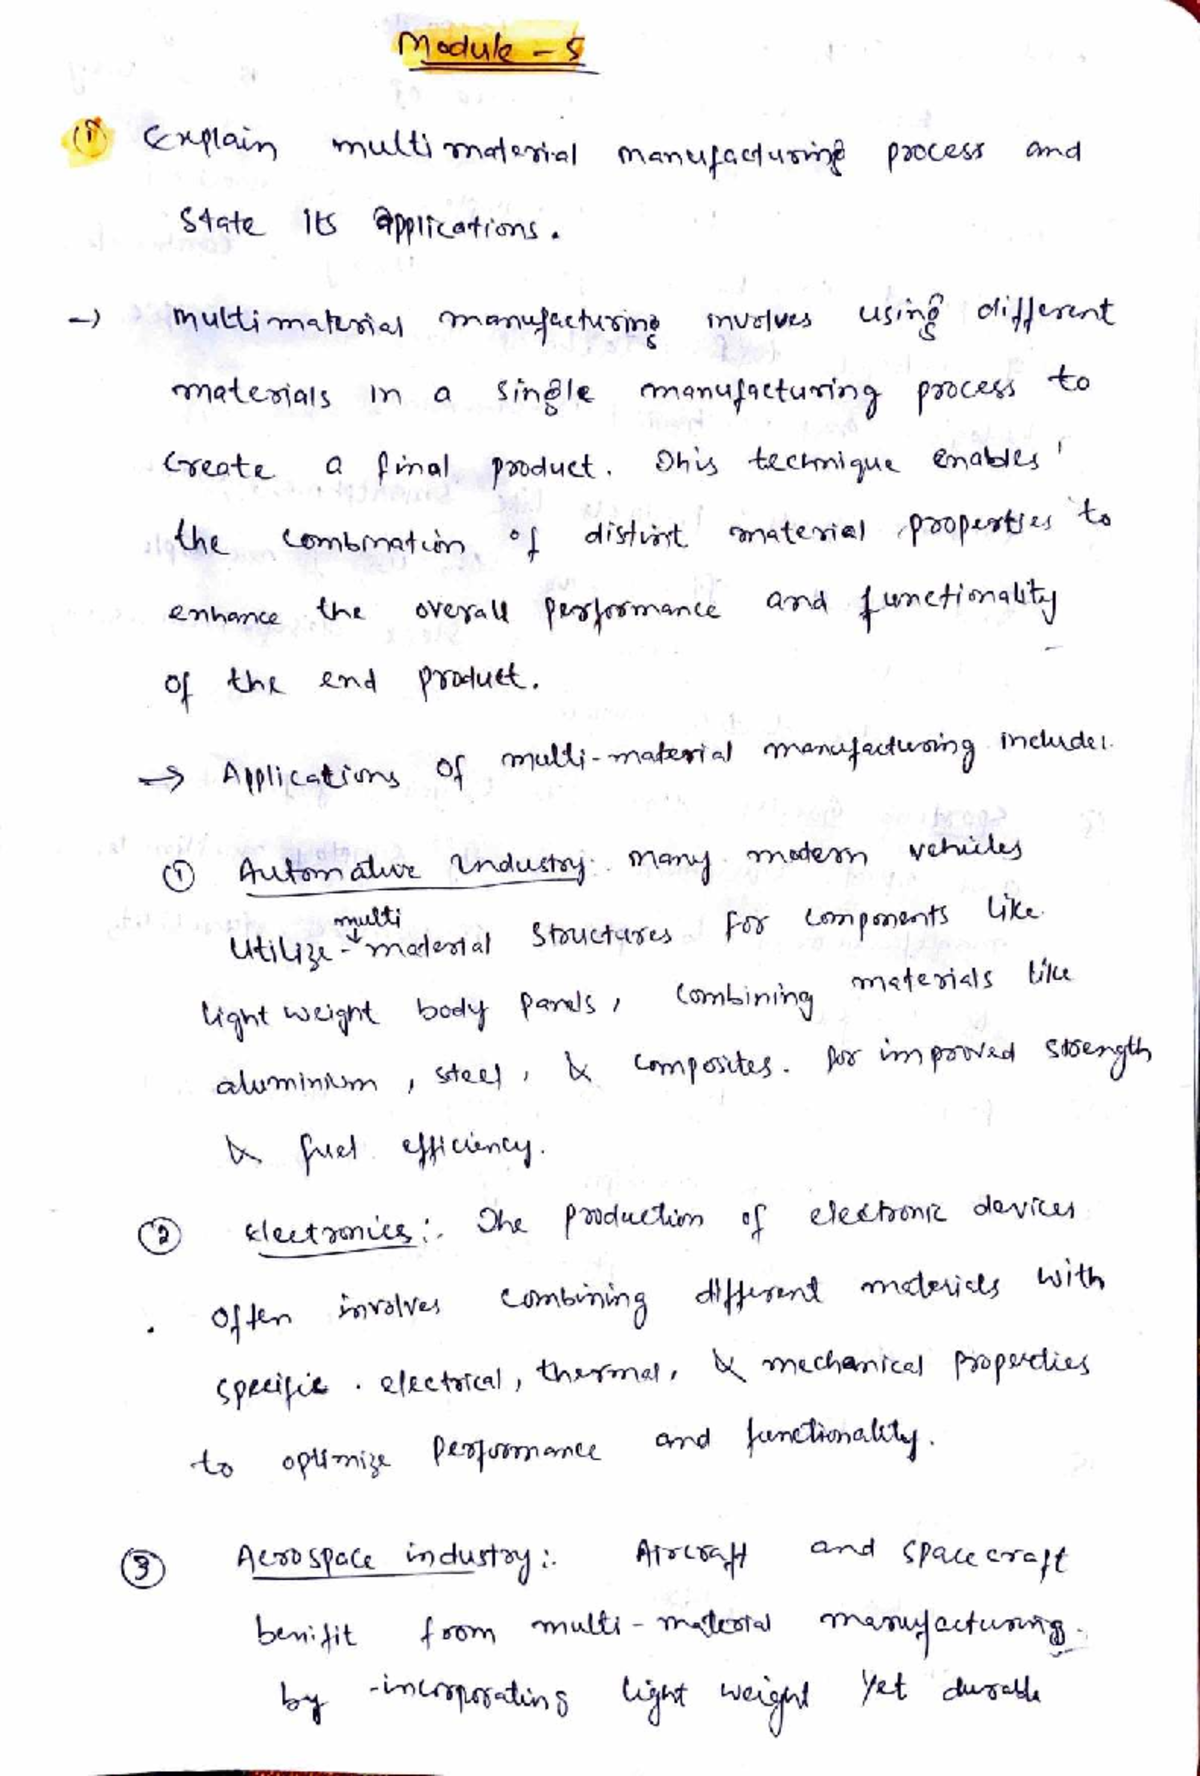 Module - 5
(1) Explain multimaterial manufacturing process and
state its applications.
-> Multimaterial manufacturing involves using different
materials in a single manufacturing process to
create a final product. This technique enables
the combination of distinct material properties to
enhance the overall performance and functionality
of the end product.
-> Applications of multi-material manufacturing includes.
① Automative Industry: Many modern vehicles
multi
Utilize - material structures for components like
light weight body panels, combining materials like
aluminium, steel, & composites. for improved strength
& fuel efficiency.
② Electronics:- The production of electronic devices
often involves combining different materials with
specific electrical, thermal, & mechanical properties
to optimize performance and functionality.
③ Aerospace industry:- Aircraft and spacecraft
benifit from multi-material manufacturing.
by -incorporating light weight yet durable